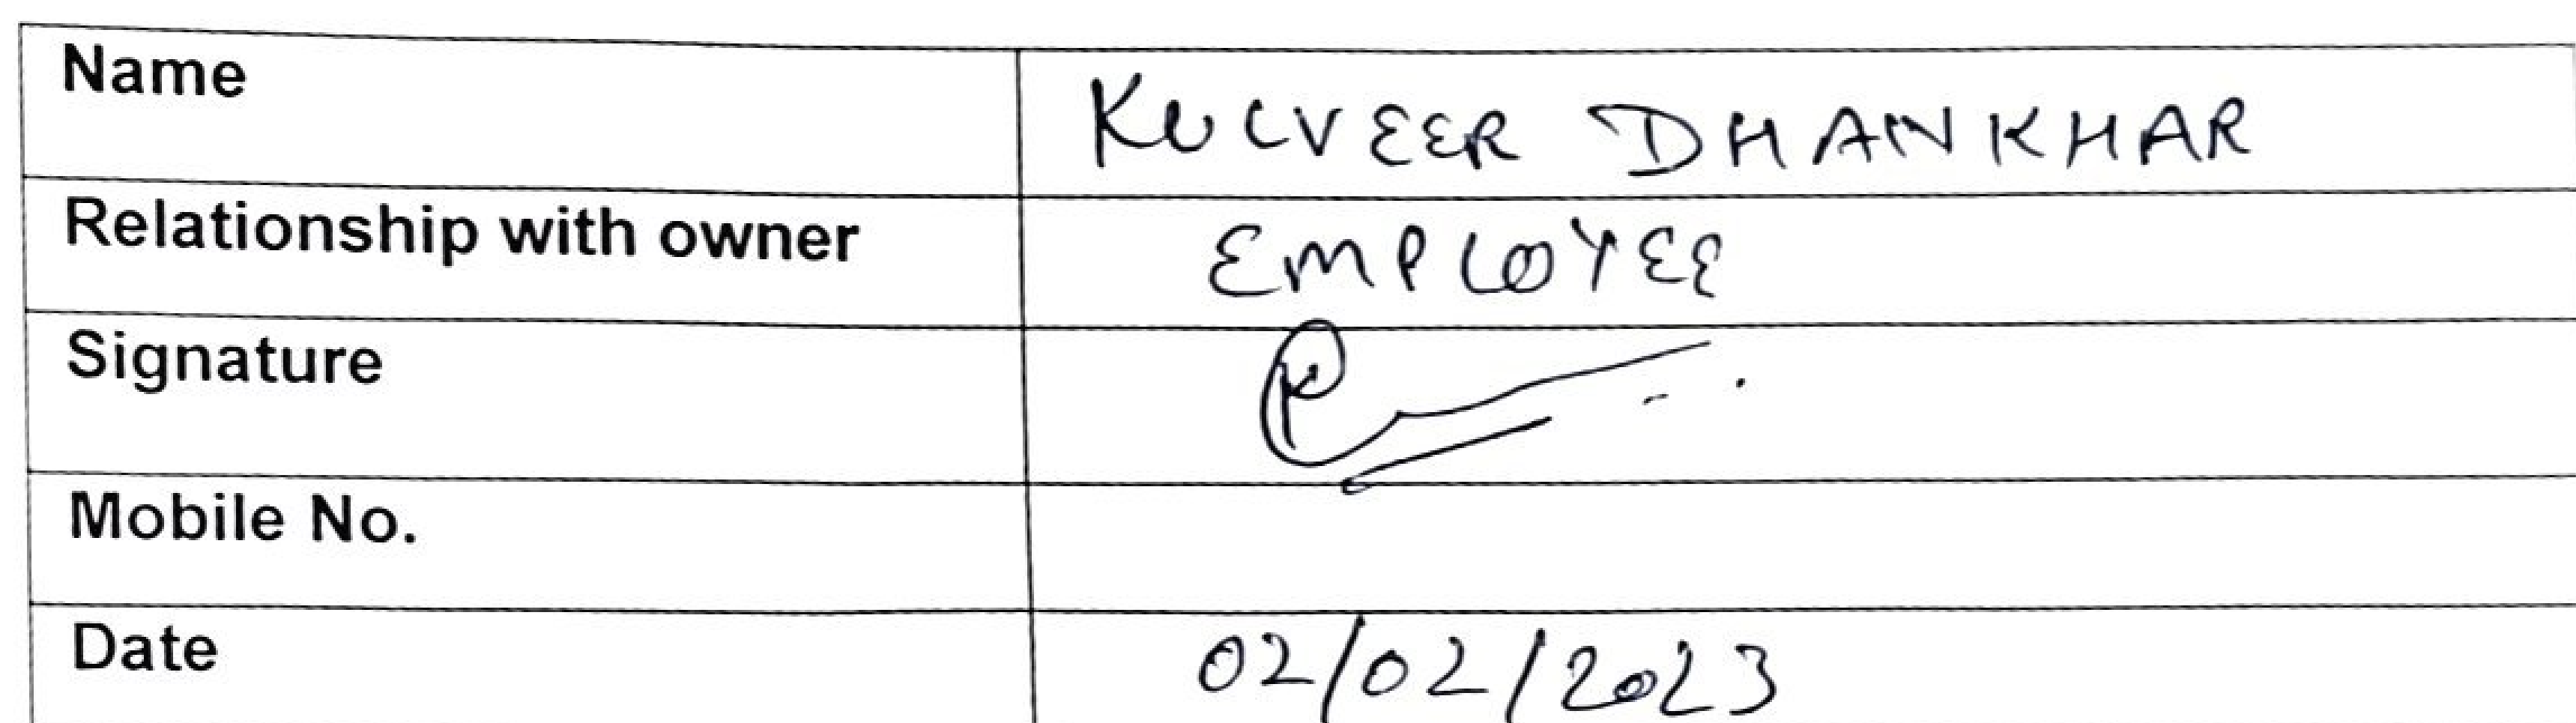 Name KULVEER DHANKHAR
Relationship with owner EMPLOYEE
Signature
Mobile No.
Date 02/02/2023